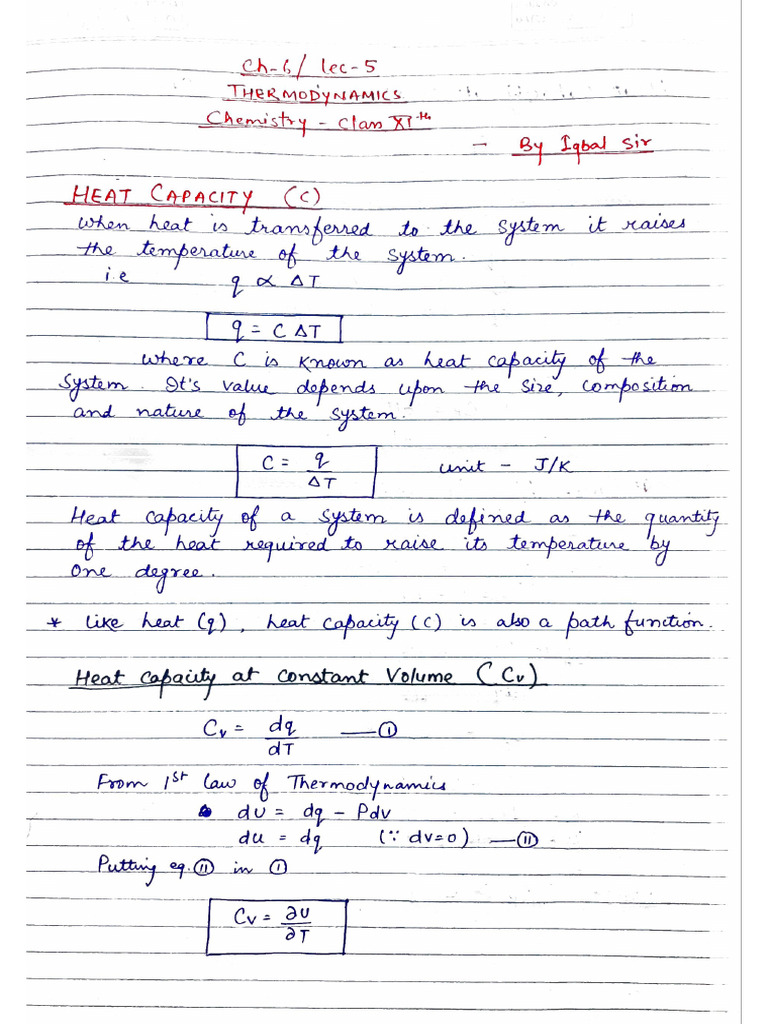 Ch-6/ Lec-5
THERMODYNAMICS
Chemistry - Class XIth
- By Iqbal Sir
HEAT CAPACITY (C)
When heat is transferred to the system it raises
the temperature of the system.
i.e q ∝ ΔT
q = C ΔT
where C is known as heat capacity of the
System. It's value depends upon the size, composition
and nature of the system.
C = q/ΔT unit - J/K
Heat capacity of a system is defined as the quantity
of the heat required to raise its temperature by
one degree.
* Like heat (q), heat capacity (C) is also a path function.
Heat capacity at constant Volume (Cv)
Cv = dq/dT —— ①
From 1st law of Thermodynamics
dU = dq - Pdv
du = dq (∵ dv=0) —— ⑪
Putting eq. ⑪ in ①
Cv = ∂U/∂T